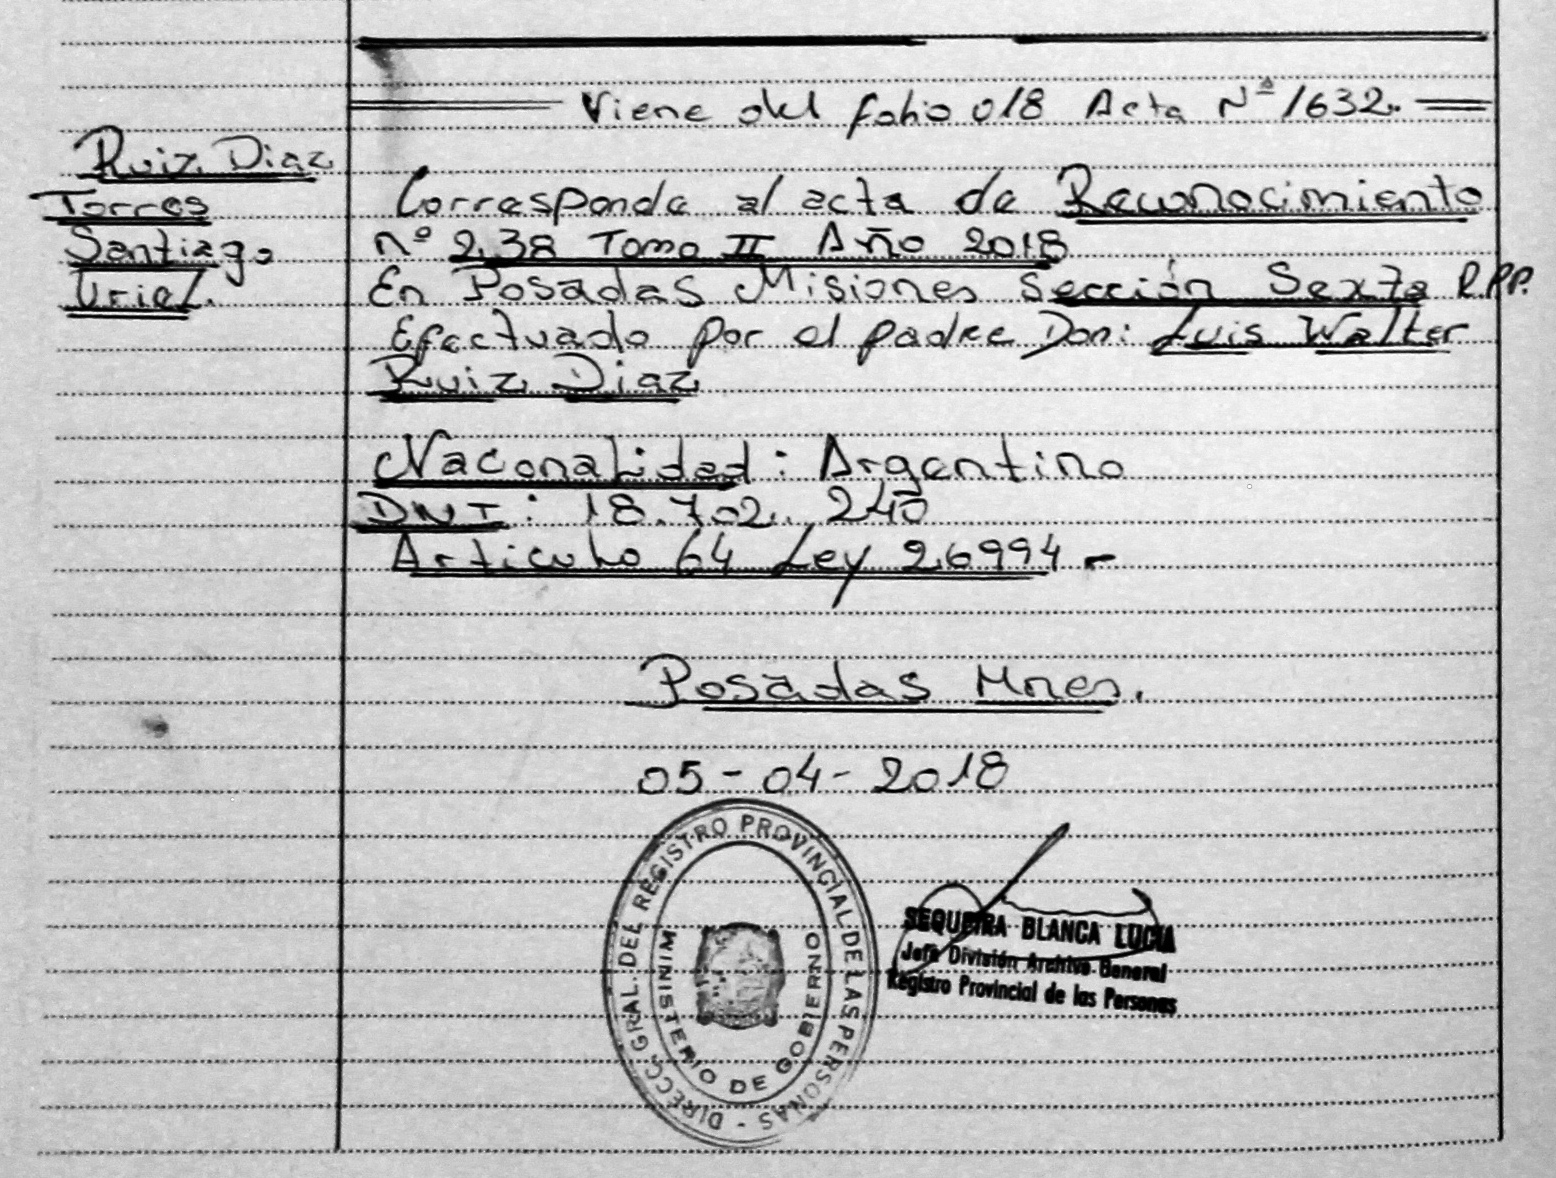 Viene del folio 018 Acta Nº 1632.
Ruiz Diaz
Torres
Santiago
Uriel.
Corresponde al acta de Reconocimiento
nº 238 Tomo II Año 2018
En Posadas Misiones Sección Sexta R.P.P.
Efectuado por el padre Don: Luis Walter
Ruiz Diaz
Naconalidad: Argentino
DNI: 18.702.240
Articulo 64 Ley 26994 -
Posadas Mnes.
05-04-2018
DIRECC. GRAL. DEL REGISTRO PROVINCIAL DE LAS PERSONAS -
MINISTERIO DE GOBIERNO
SEQUEIRA BLANCA LUCIA
Jefe División Archivo General
Registro Provincial de las Personas